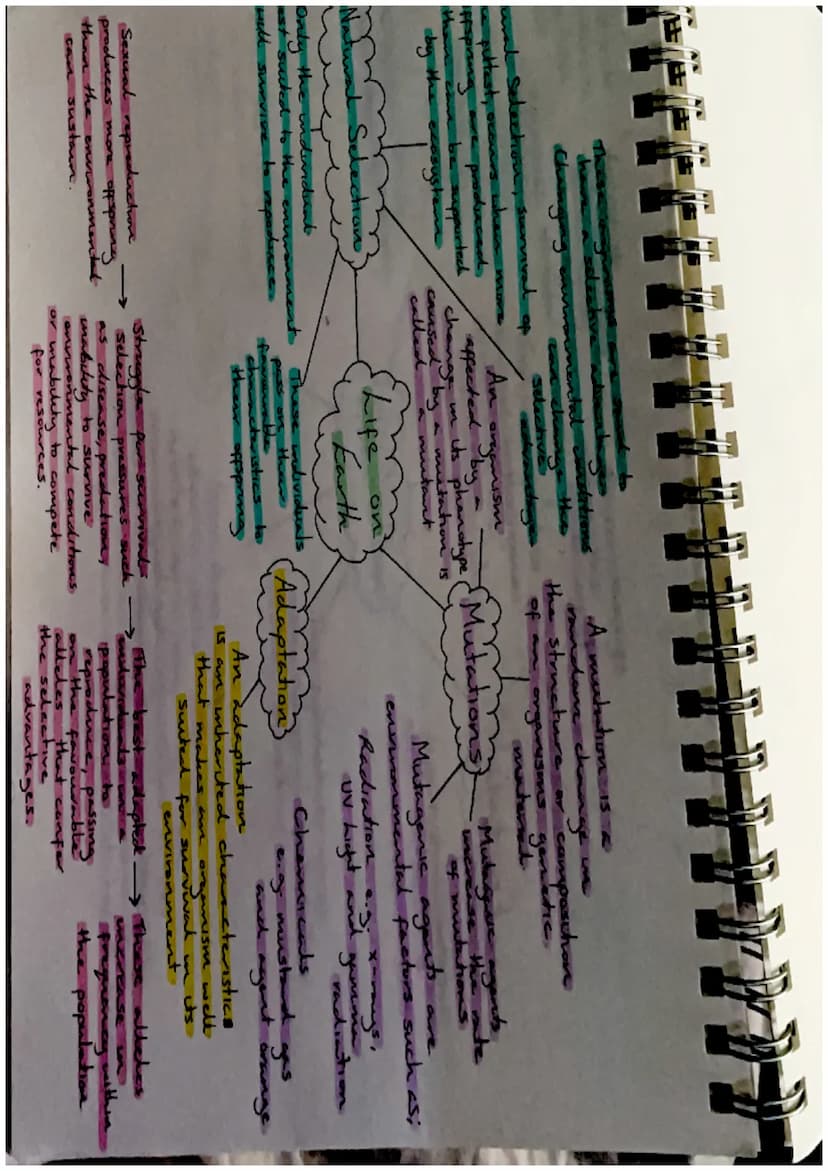 These organisms are said to
have a selective advantage.
Changing environmental conditions
can change the
selective
advantage
Selection, survival of
the fittest, occurs when more
offspring are produced
than can be supported
by the ecosystem
Natural Selection
Only the individual
best suited to the environment
will survive to reproduce
These individuals
pass on their
favourable
characteristics to
their offspring
Life on
Earth
An organism
affected by a
change in its phenotype
caused by a mutation is
called a mutant
Mutations
A mutation is a
random change in
the structure or composition
of an organisms genetic
material
Mutagenic agents
increase the rate
of mutations
Mutagenic agents are
environmental factors such as;
Radiation e.g. x-rays,
UV light and gamma
radiation
Chemicals
e.g mustard gas
and agent orange
Adaptation
An adaptation
is an inherited characteristics
that makes an organism well
suited for survival in its
environment
Sexual reproduction
produces more offspring
than the environmental
can sustain.
→
Struggle for survival:
selection pressures such
as disease, predation,
inability to survive
environmental conditions
or inability to compete
for resources.
→
The best adapted
individuals in a
population to
reproduce, passing
on the favourable
alleles that confer
the selective
advantages.
→
Those alleles
increase in
frequency within
the population